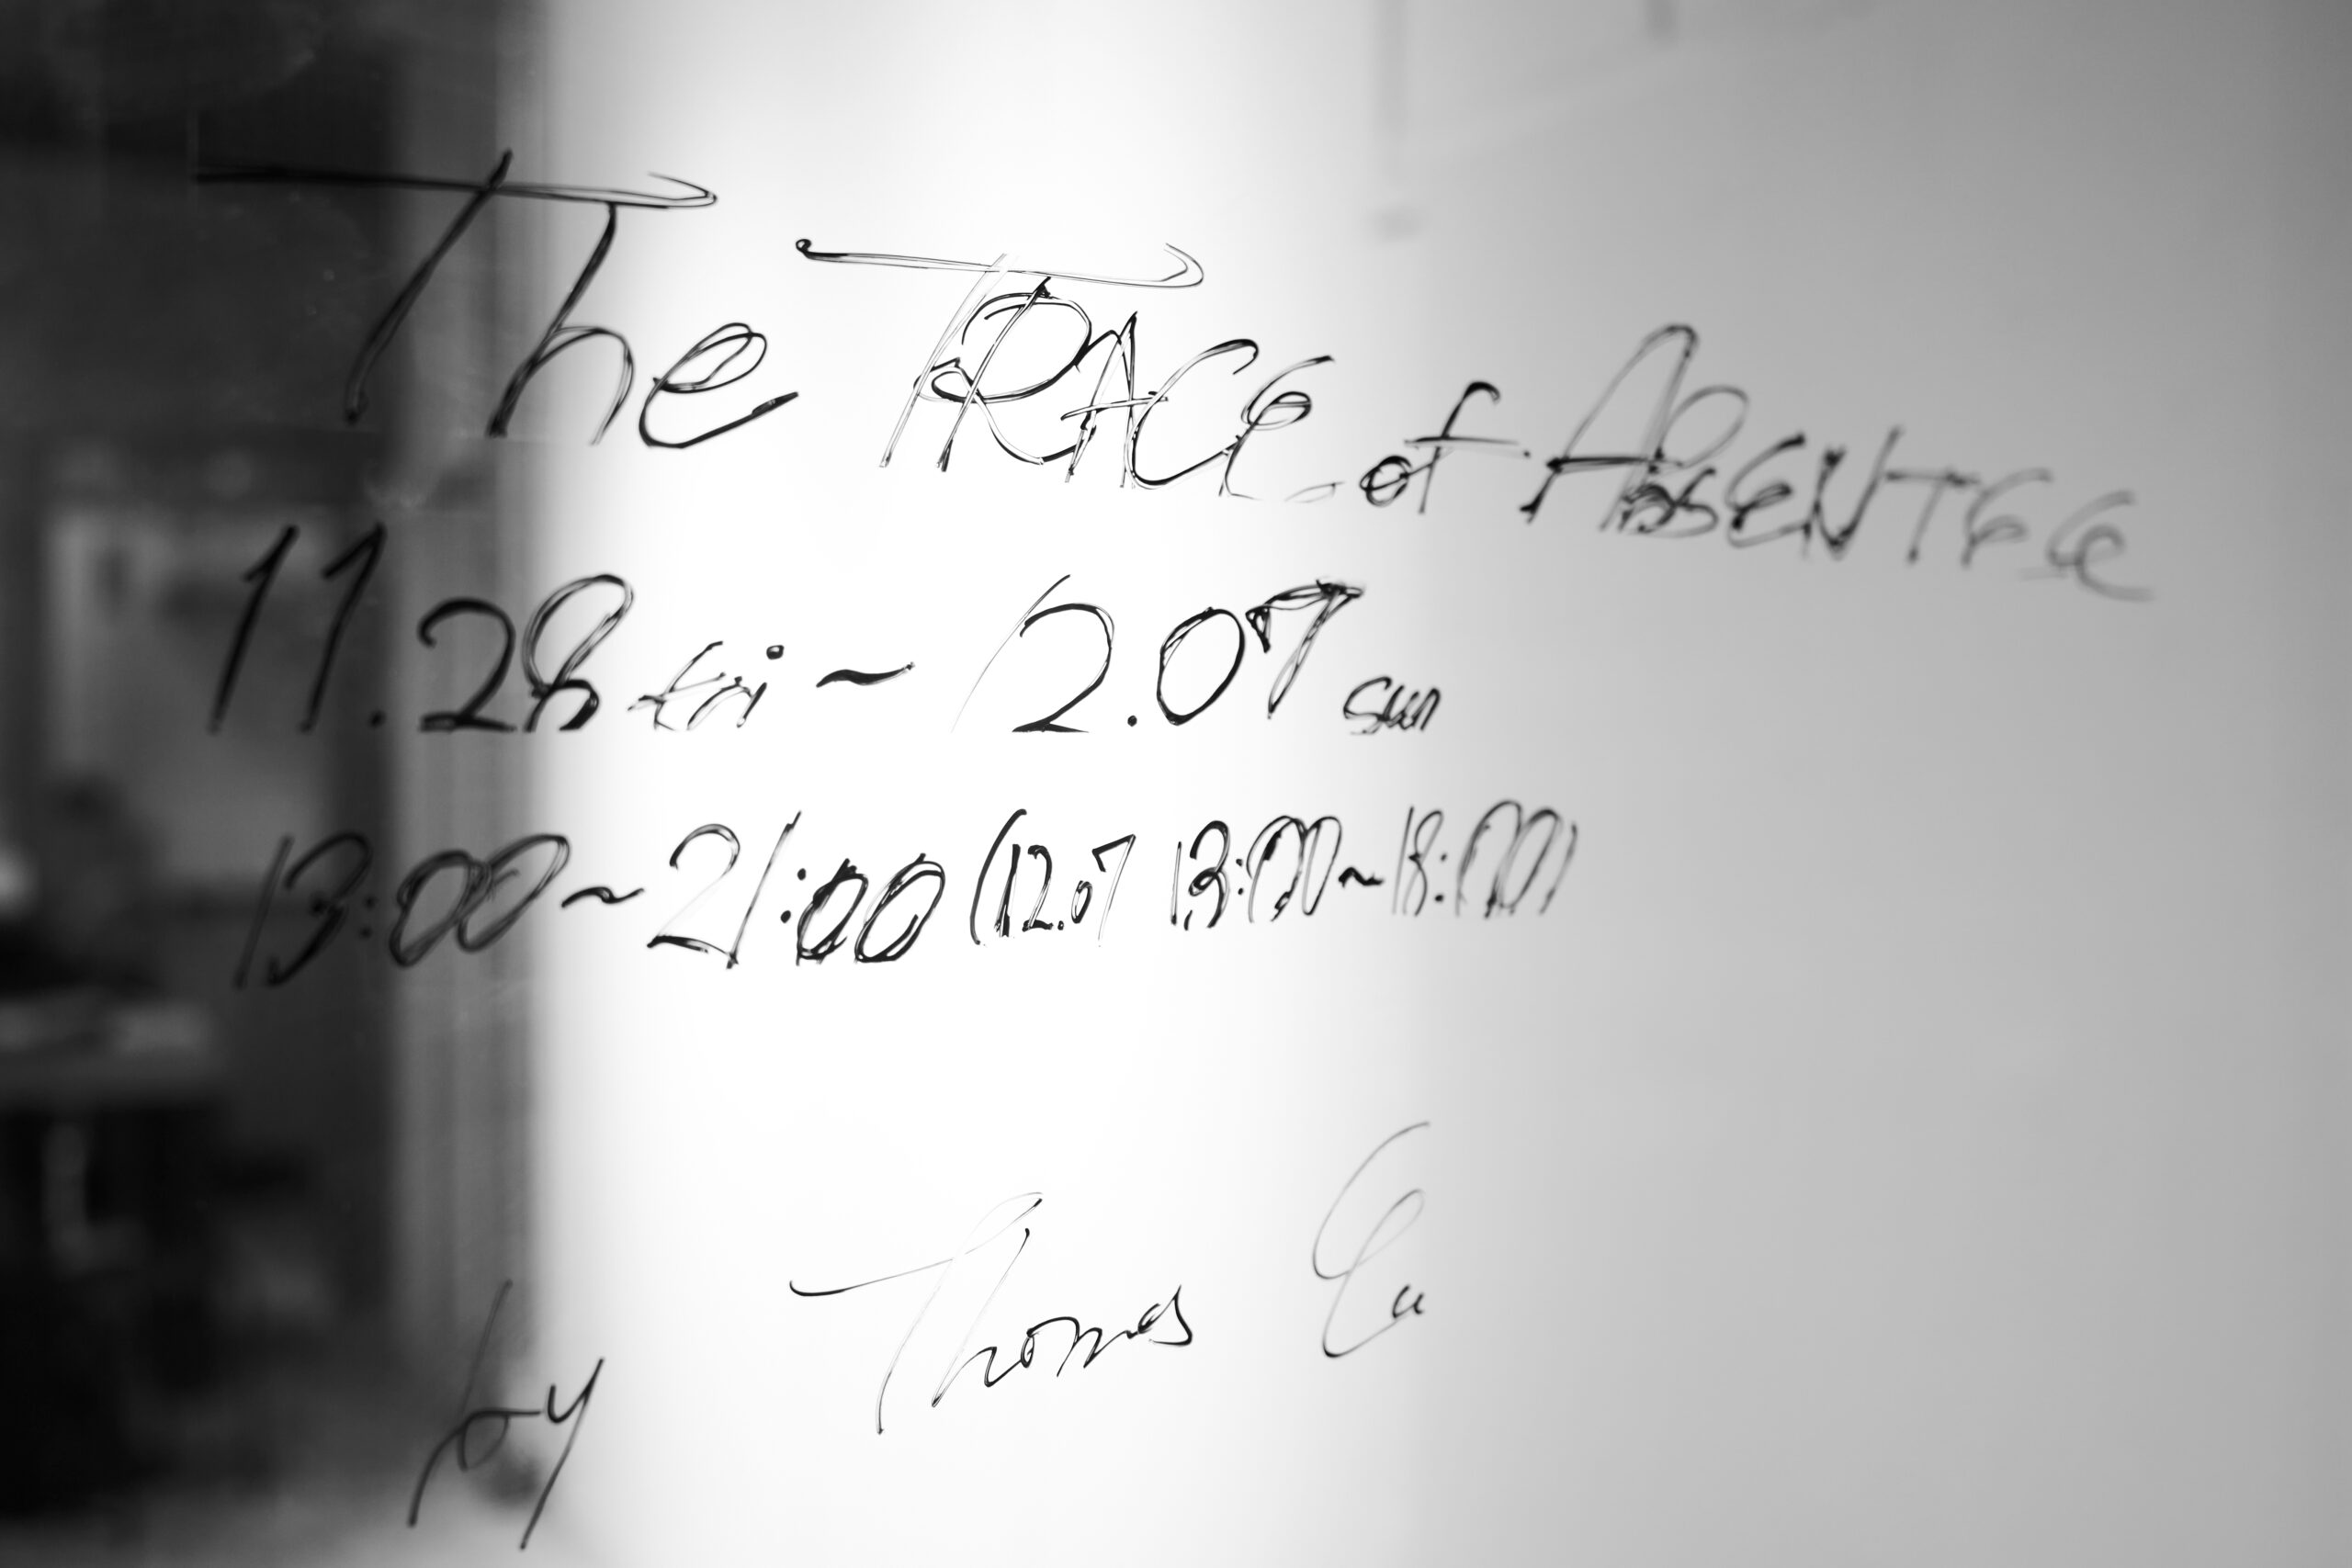 The TRACE of ABSENTEE
11.28 fri ~ 12.07 sun
13:00 ~ 21:00 (12.07 13:00 ~ 18:00)
by Thomas Eu